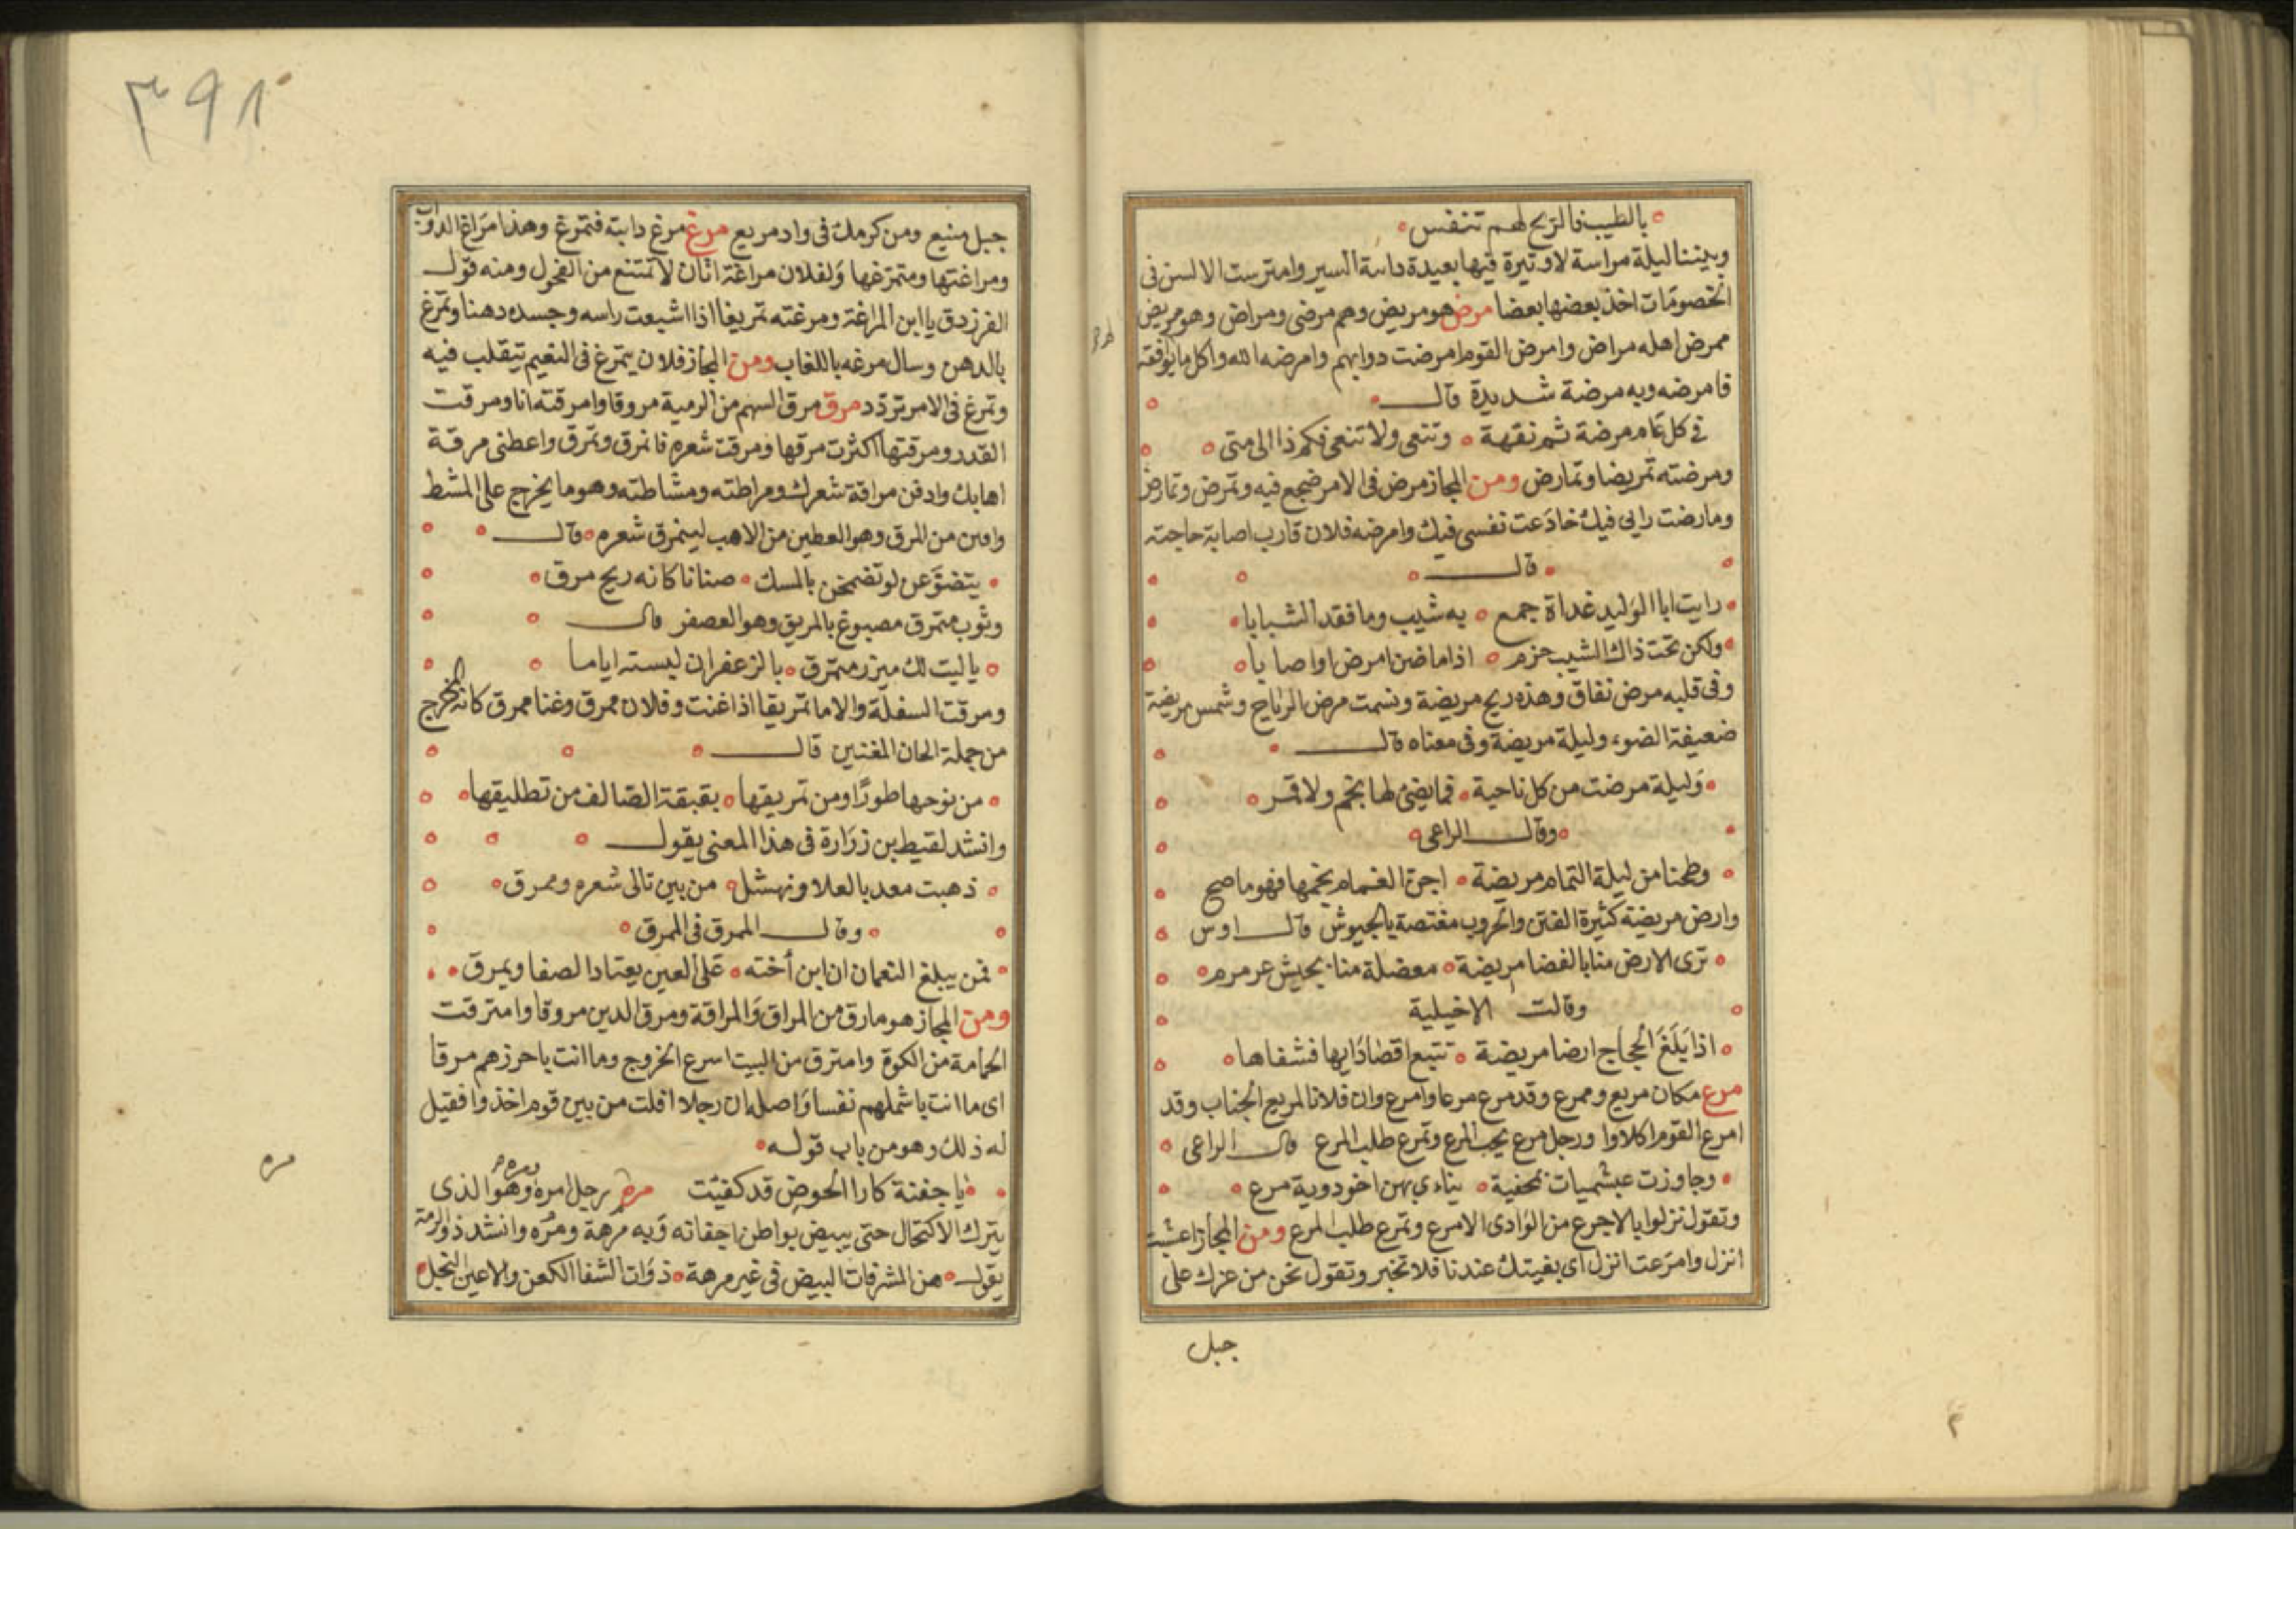 بالطيب فالريح لهم تنفس
وبيننا ليلة مراسة لا وتيرة فيها بعيدة دائبة السير وامترست الالسن فى
الخصومات اخذ بعضها بعضا مرض هو مريض وهم مرضى ومراض وهو مريض
ممرض اهله مراض وامرض القوم امرضت دوابهم وامرضه الله واكل ما يوافقه
فامرضه وبه مرضة شديدة قال
فى كل عام مرضة ثم نقهة وتنعى ولا تنعى فكم ذا الى متى
ومرضته تمريضا وتمارض ومن المجاز مرض فى الامر ضجع فيه وتمرض وتمارض
ومارضت رايى فيك خادعت نفسى فيك وامرضه فلان قارب اصابة حاجته
قال
رايت ابا الوليد غداة جمع به شيب وما فقد الشبابا
ولكن تحت ذاك الشيب حزم اذا ما ظن امرض او اصابا
وفى قلبه مرض نفاق وهذه ريح مريضة ونسمت مرض الرياح وشمس مريضة
ضعيفة الضوء وليلة مريضة وفى معناه قال
وليلة مرضت من كل ناحية فما يضئ لها نجم ولا قمر
وقال الراعى
وطخنا من ليلة التمام مريضة اجن الغمام نجمها فهو ماصح
وارض مريضة كثيرة الفتن والحروب مغتصة بالجيوش قال اوس
ترى الارض منا بالفضا مريضة معضلة منا بجيش عرمرم
وقالت الاخيلية
اذا بلغ الحجاج ارضا مريضة تتبع اقصا دائها فشفاها
مرع مكان مريع وممرع وقد مرع مرعا وامرع وان فلانا لمريع الجناب وقد
امرع القوم اكلاوا ورجل مرع يحب المرع وتمرع طلب المرع قال الراعى
وجاوزت عبشميات بمحنية يناءى بهن اخو دوية مرع
وتقول نزلوا بالاجرع من الوادى الامرع وتمرع طلب المرع ومن المجاز اعشبت
انزل وامرعت انزل اى بغيتك عندنا فلا تخبر وتقول نحن من عزك على
جبل
٣٩٨
جبل منيع ومن كرمك فى واد مريع مرغ مرغ دابته فتمرغ وهذا مراغ الدواب
ومراغتها ومتمرغها ولفلان مراغة اتان لا تمتنع من الفحول ومنه قول
الفرزدق يا ابن المراغة ومرغته تمريغا اذا اشبعت راسه وجسده دهنا وتمرغ
بالدهن وسال مرغه باللغاب ومن المجاز فلان يتمرغ فى النعيم يتقلب فيه
وتمرغ فى الامر تردد مرق مرق السهم من الرمية مروقا وامرقته انا ومرقت
القدر ومرقتها اكثرت مرقها ومرقت شعره فانمرق وتمرق واعطنى مرقة
اهابك وادفن مراقة شعرك ومراطته ومشاطته وهو ما يخرج على المشط
وانتن من المرق وهو العطين من الاهب لينمرق شعره قال
يتضوعن لو تضمخن بالمسك صنانا كانه ريح مرق
وثوب متمرق مصبوغ بالمريق وهو العصفر قال
يا ليت لك ميزر متمرق بالزعفران لبسته اياما
ومرقت السفلة والاما تمريقا اذا غنت وفلان ممرق وغنا ممرق كانه المخرج
من جملة الحان المغنين قال
من نوحها طورا ومن تمريقها بقبقة الصالف من تطليقها
وانشد لقيط بن زرارة فى هذا المعنى يقول
ذهبت معد بالعلا ونهشل من بين تالى شعره وممرق
وقال الممرق فى الممرق
فمن يبلغ النعمان ان ابن أخته على العين يعتاد الصفا ويمرق
ومن المجاز هو مارق من المراق والمراقة ومرق الدين مروقا وامترقت
الحمامة من الكوة وامترق من البيت اسرع الخروج وما انت باحرزهم مرقا
اى ما انت باشملهم نفسا واصله ان رجلا افلت من بين قوم اخذوا فقيل
له ذلك وهو من باب قوله
يا جفنة كازا الحوض قد كفئت مره رجل امره وهو الذى
يترك الاكتحال حتى يبيض بواطن اجفانه وبه مرهة ومره وانشد ذو الرمة
يقول هن المشرفات البيض فى غير مرهة ذوات الشفا الكعن والاعين النجل
مره